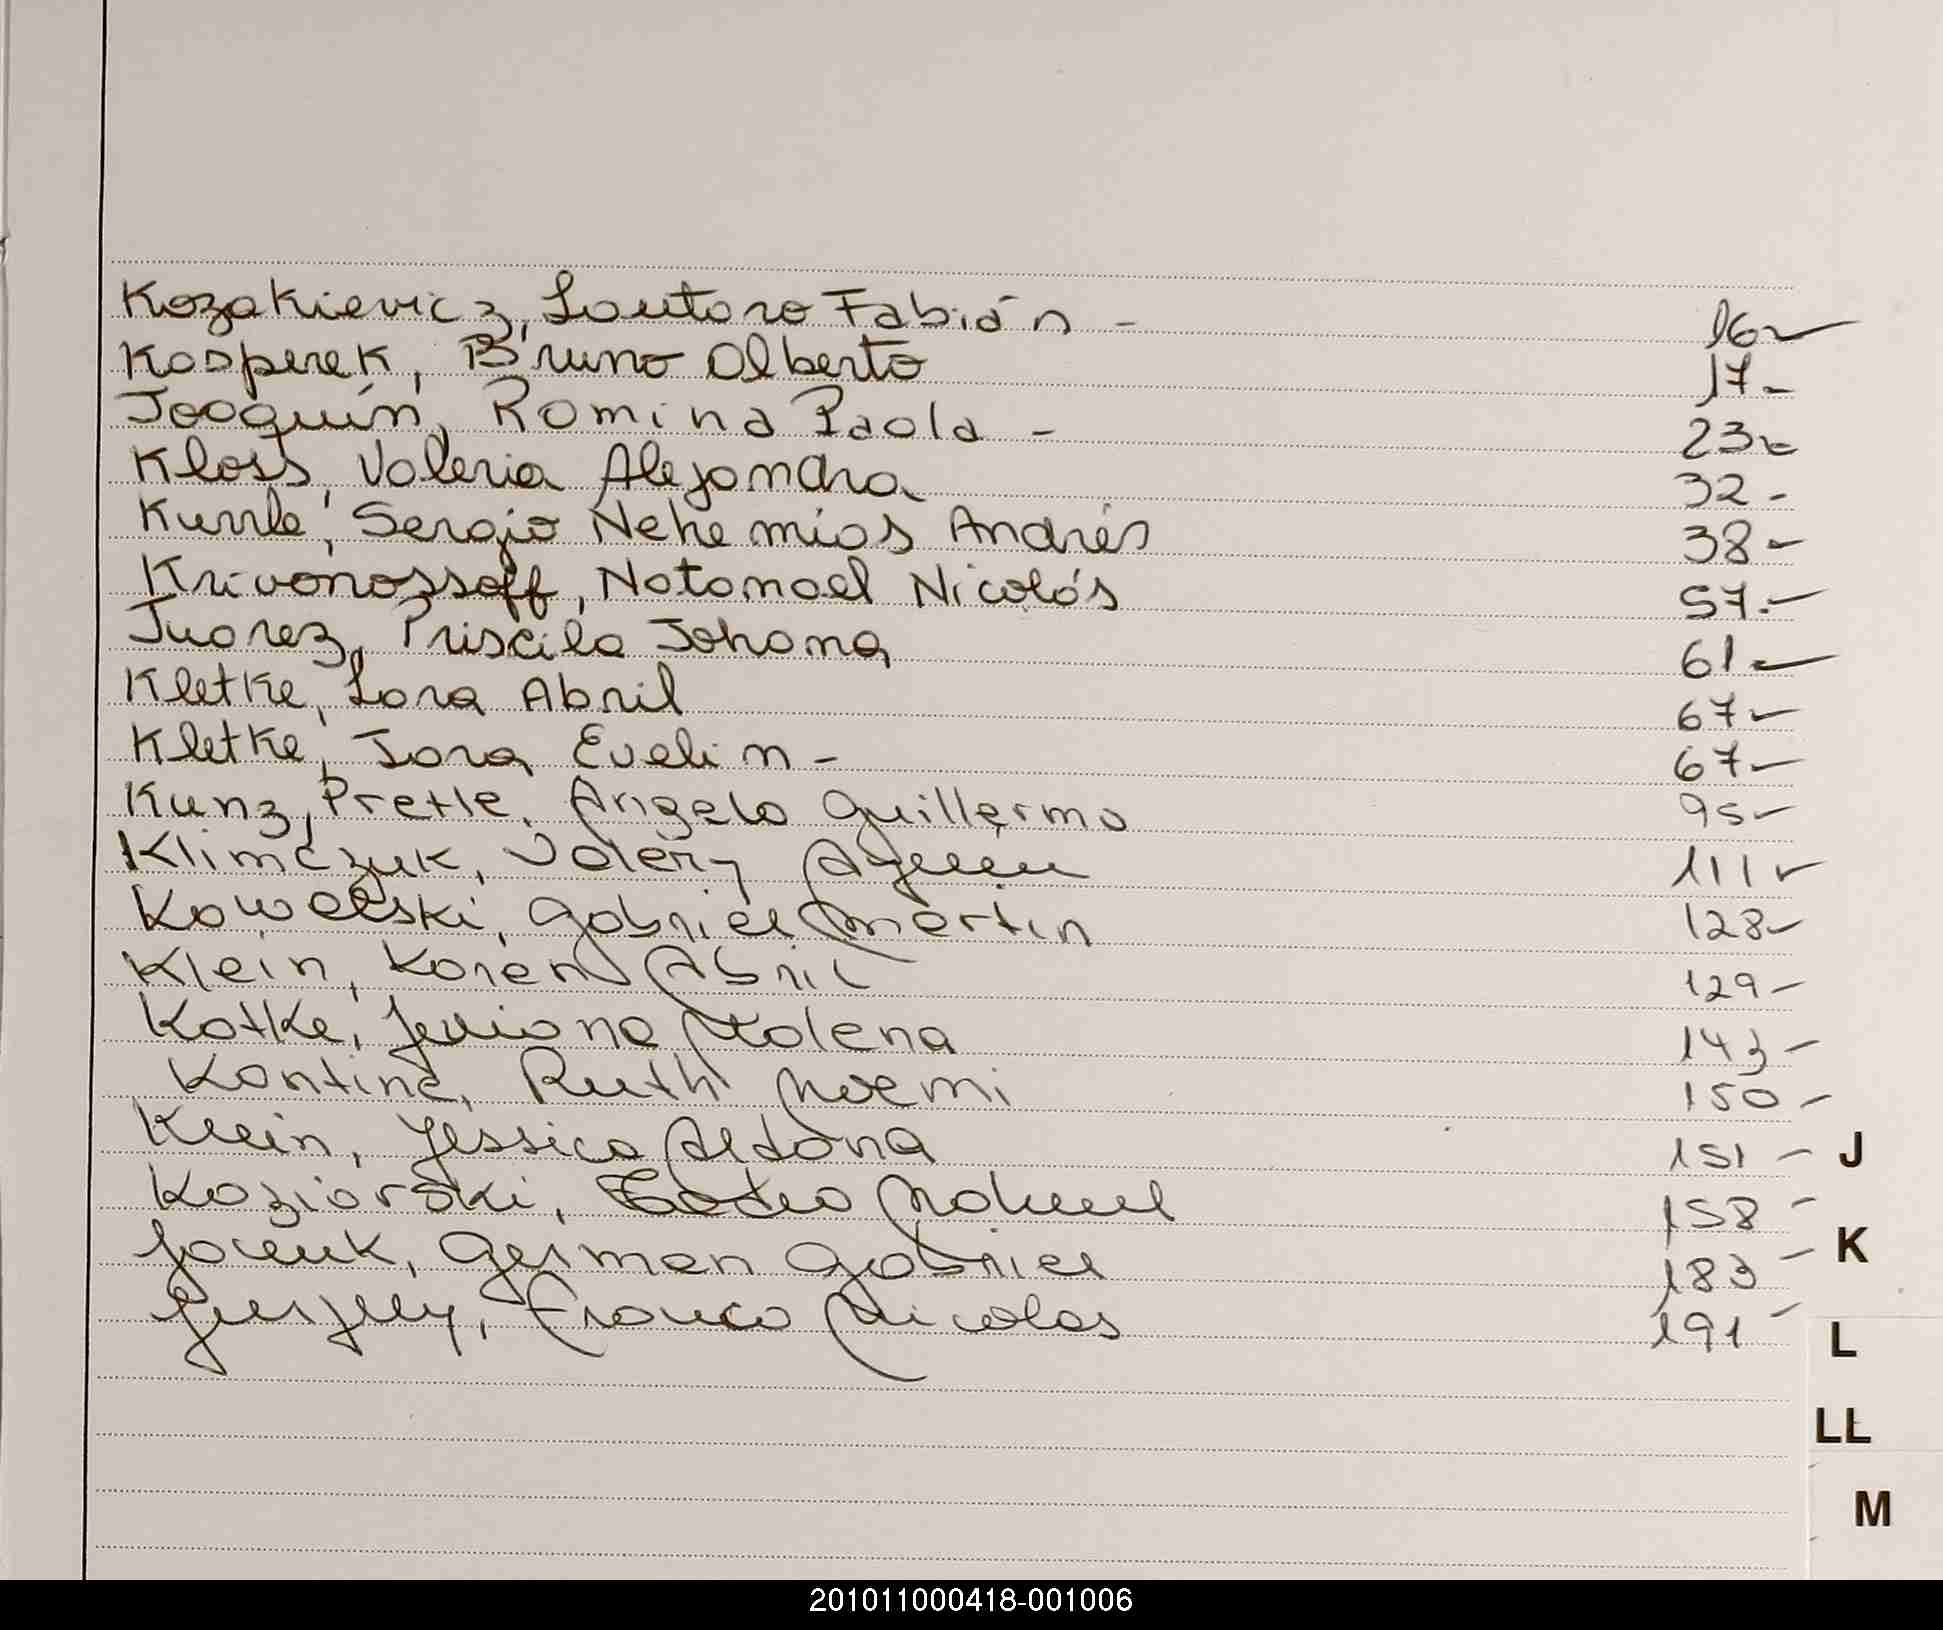 Kozakievicz, Lautaro Fabián - 16
Kasperek, Bruno Alberto 17-
Joaquín, Romina Paola - 23
Kloss, Valeria Alejandra 32-
Kurrle, Sergio Nehemias Andrés 38-
Krivonossoff, Natanael Nicolás 57.-
Juarez, Priscila Johana 61-
Kletke, Lara Abril 67-
Kletke, Jara Evelin - 67-
Kunz, Pretle, Angelo Guillermo 95-
Klimczuk, Valery Ayelen 111
Kowalski, Gabriel Martin 128-
Klein, Karen Abril 129-
Katke, Milena 143-
Ruth Noemi 150-
Klein, Jessica Aldana 151- J
Koziarski, Nahuel 158-
German Gabriel 183- K
Franco Nicolas 191-
L
LL
M
201011000418-001006